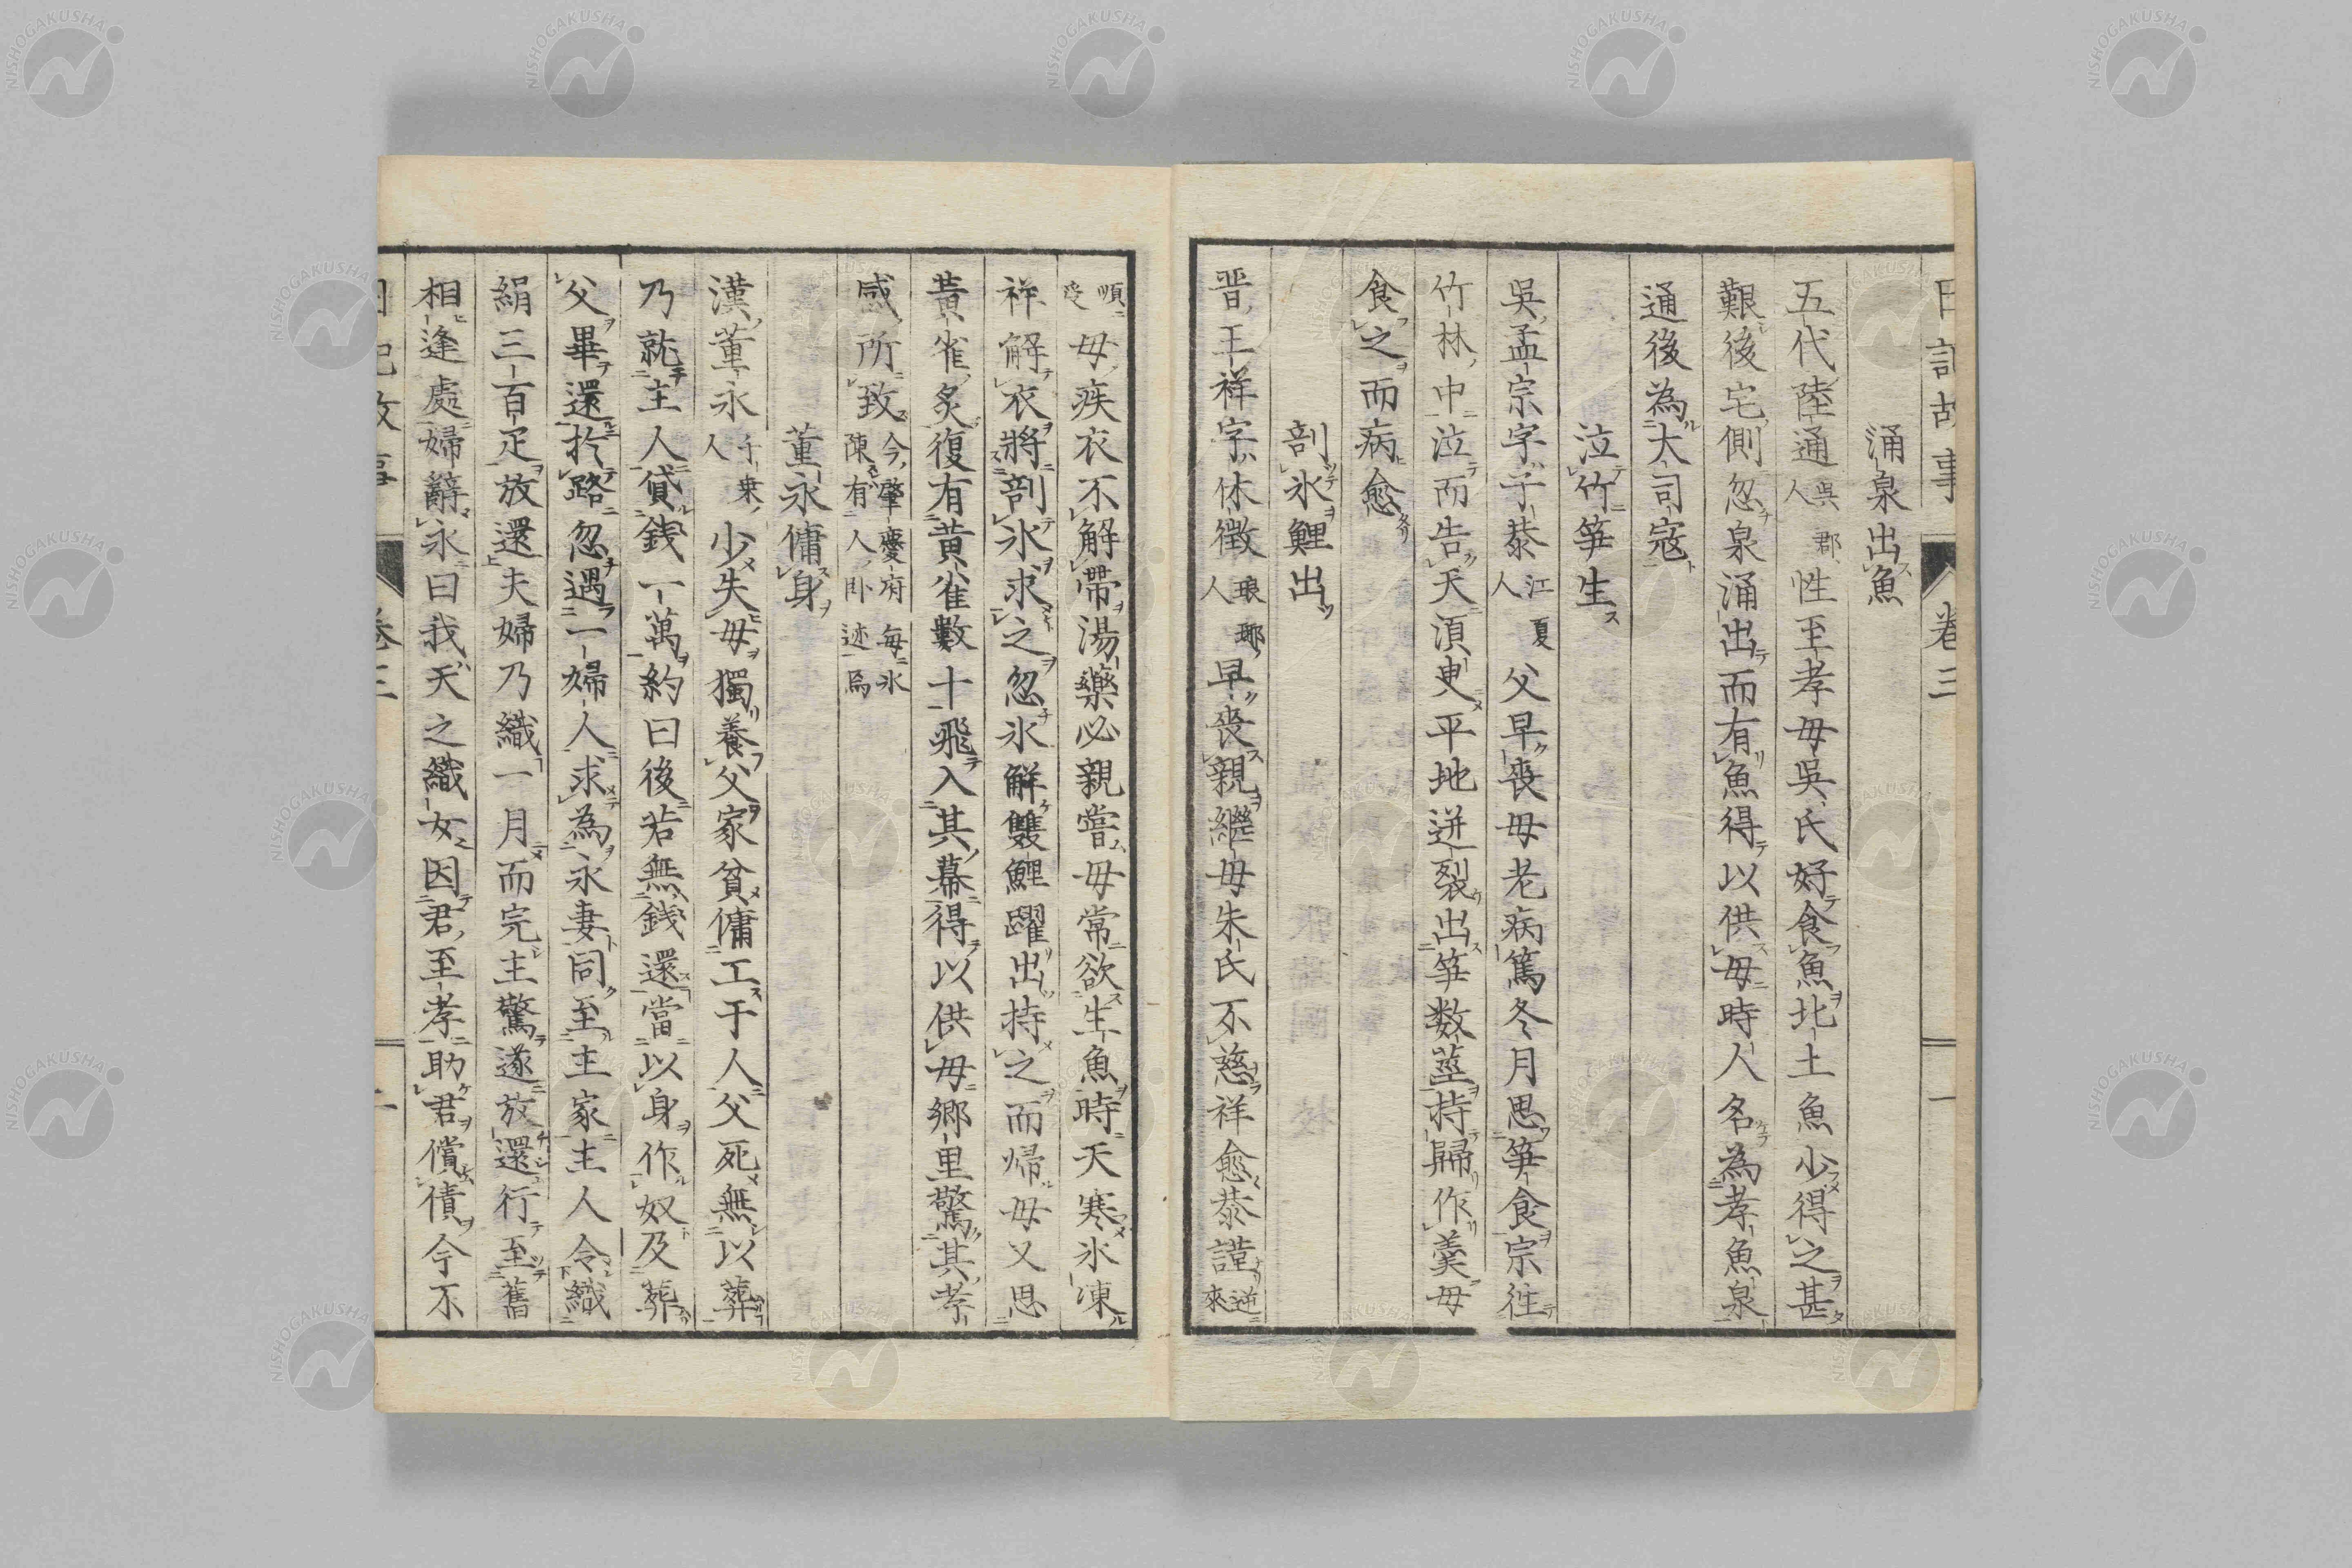 日記故事　卷三　一
涌泉出魚
五代陸通吳郡人性至孝母吳氏好食魚北土魚少得之甚
艱後宅側忽泉涌出而有魚得以供母時人名為孝魚泉
通後為大司寇
泣竹筍生
吳孟宗字子恭江夏人父早喪母老病篤冬月思筍食宗往
竹林中泣而告天須臾平地迸裂出筍数莖持歸作羹母
食之而病愈
剖氷鯉出
晋王祥字休徵琅琊人早喪親繼母朱氏不慈祥愈恭謹逆來
順受母疾衣不解帶湯藥必親嘗母常欲生魚時天寒氷凍
祥解衣將剖氷求之忽氷解雙鯉躍出持之而帰母又思
黃雀炙復有黃雀數十飛入其幕得以供母鄉里驚其孝
感所致今肇慶府陳有人卧每氷迹焉
董永傭身
漢董永千乗人少失母獨養父家貧傭工于人父死無以葬
乃就主人貸錢一萬約曰後若無錢還當以身作奴及葬
父畢還於路忽遇一婦人求為永妻同至主家主人令織
絹三百疋放還夫婦乃織一月而完主驚遂放還行至舊
相逢處婦辭永曰我天之織女因君至孝助君償債今不
日記故事　卷三　二
NISHOGAKUSHA